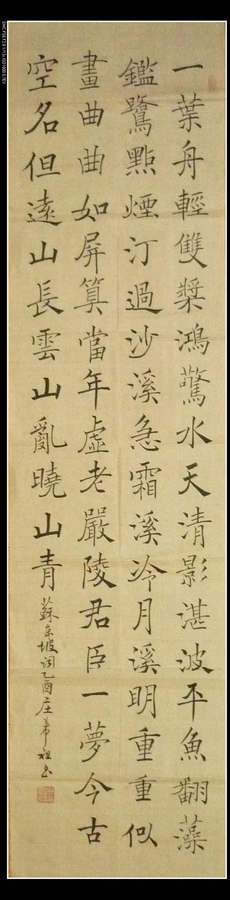 一葉舟輕雙槳鴻驚水天清影湛波平魚翻藻
鑑鷺點煙汀過沙溪急霜溪冷月溪明重重似
畫曲曲如屏算當年虛老嚴陵君臣一夢今古
空名但遠山長雲山亂曉山青
蘇东坡词乙酉庄希祖书